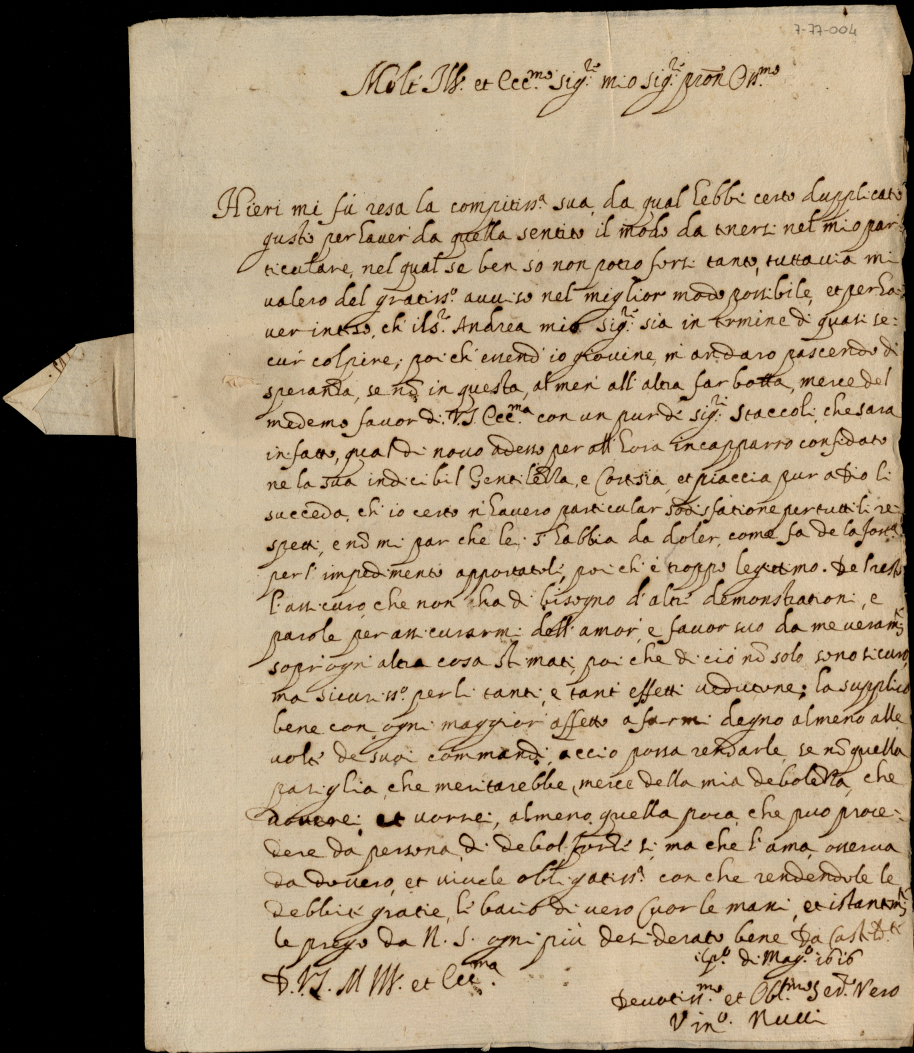 7-77-004
Molt' Ill. et Ecc.mo Sig.re mio Sig.re pron Oss.mo
Hieri mi fù resa la compitiss.a sua, da qual hebbi certo dupplicato
gusto per haver da quella sentito il modo da tnersi nel mio par-
ticulare, nel qual se ben so non potro forsi tanto, tuttavia mi
valero del gratiss.o avviso nel miglior modo possibile, et per ha-
ver inteso, ch' il s.r Andrea mio Sig.re sia in termine di quasi se-
cur colpire; poi ch' essend' io giovine, m' andaro pascendo di
speranza, se nō in questa, al men' all' altra far botta, merce del
medemo favor di V.S. Ecc.ma con un pur de sig.ri Staccoli, che sara
in fatto, qual di novo adesso per all' hora incapparro confidato
ne la sua indicibil Gentilezza, e Cortsia, et piaccia pur a Dio li
succeda, ch' io certo n' havero particular sodisfatione per tutti li re-
spetti, e nō mi par che lei s' habbia da doler, come fa de la fort.a
per l' impedimento apportatoli, poi ch' è troppo legittimo. Del resto
l' assicuro, che non ha di bisogno d' altre demonstrationi, e
parole per assicurarmi dell' amor, e favor suo da me veram.te
sopr' ogni altra cosa stimati, poi che di ciò nō solo sono sicuro,
ma sicuriss.o per li tanti, e tanti effetti vedutone; la supplico
bene con ogni maggior' affetto a farmi degno almeno alle
volte de suoi commandi, accio possa rendarle, se nō quella
pariglia, che meritarebbe, merce della mia debolezza, che
et vorrei, almeno quella poca, che può proce-
dere da persona di debol forze sì, ma che l' ama, osserva
da dovero, et vivele obligatiss.a con che rendendole le
debbite gratie, li bacio di vero Cuor le mani, et istantem.te
le prego da N. S. ogni più desiderato bene Da Cast. D.te
il p.o di Mag.o 1616
D. V.S. M. Ill. et Ecc.ma
Devotiss.mo et Obl.mo Ser.e Vero
Vin.o Nucci